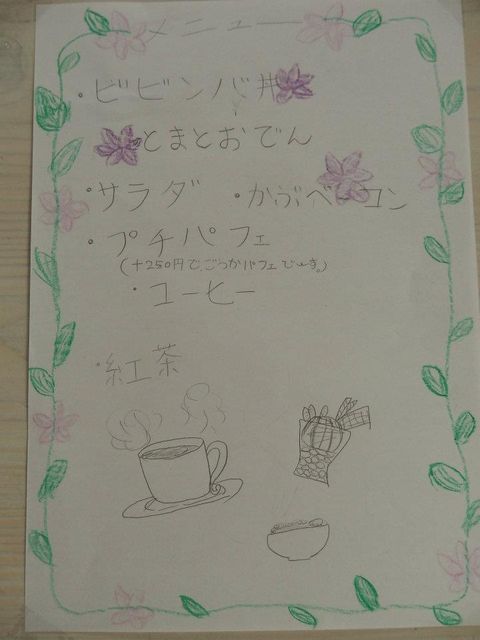 メニュー
・ビビンバ丼
とまとおでん
・サラダ ・かぶベーコン
・プチパフェ
(+250円で、ごうかパフェです。)
・コーヒー
・紅茶